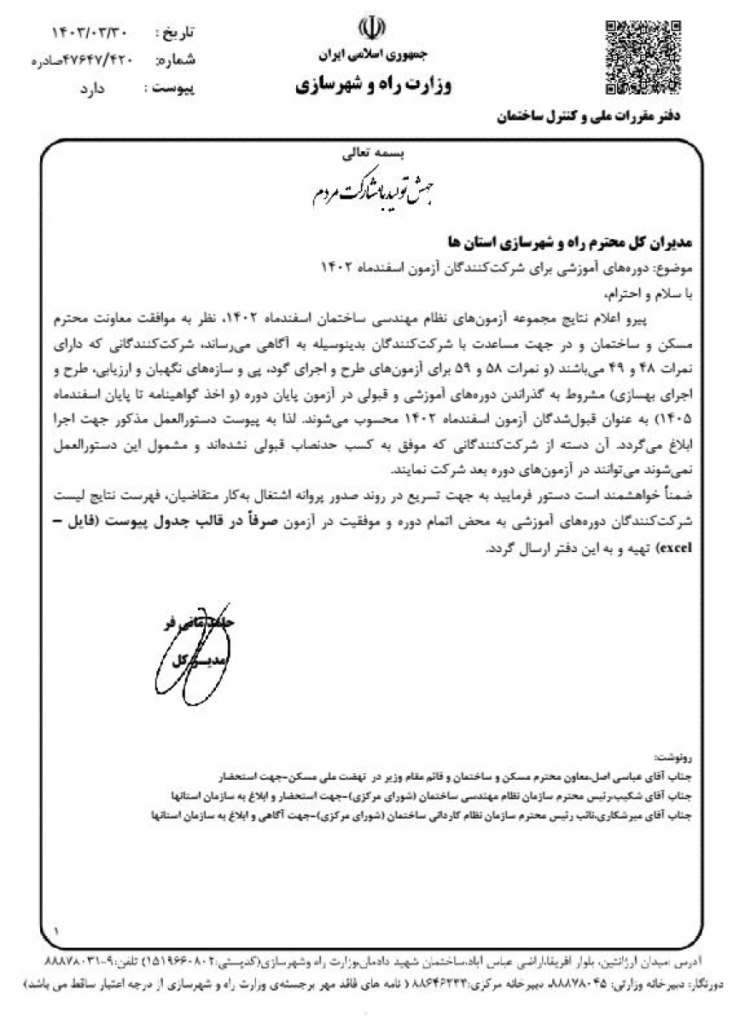 تاریخ : ۱۴۰۳/۰۳/۳۰
شماره: ۴۷۶۴۷/۴۲۰صادره
پیوست : دارد
جمهوری اسلامی ایران
وزارت راه و شهرسازی
دفتر مقررات ملی و کنترل ساختمان
بسمه تعالی
جهش تولید با مشارکت مردم
مدیران کل محترم راه و شهرسازی استان ها
موضوع: دوره‌های آموزشی برای شرکت‌کنندگان آزمون اسفندماه ۱۴۰۲
با سلام و احترام،
پیرو اعلام نتایج مجموعه آزمون‌های نظام مهندسی ساختمان اسفندماه ۱۴۰۲، نظر به موافقت معاونت محترم
مسکن و ساختمان و در جهت مساعدت با شرکت‌کنندگان بدینوسیله به آگاهی می‌رساند، شرکت‌کنندگانی که دارای
نمرات ۴۸ و ۴۹ می‌باشند (و نمرات ۵۸ و ۵۹ برای آزمون‌های طرح و اجرای گود، پی و سازه‌های نگهبان و ارزیابی، طرح و
اجرای بهسازی) مشروط به گذراندن دوره‌های آموزشی و قبولی در آزمون پایان دوره (و اخذ گواهینامه تا پایان اسفندماه
۱۴۰۵) به عنوان قبول‌شدگان آزمون اسفندماه ۱۴۰۲ محسوب می‌شوند. لذا به پیوست دستورالعمل مذکور جهت اجرا
ابلاغ می‌گردد. آن دسته از شرکت‌کنندگانی که موفق به کسب حدنصاب قبولی نشده‌اند و مشمول این دستورالعمل
نمی‌شوند می‌توانند در آزمون‌های دوره بعد شرکت نمایند.
ضمناً خواهشمند است دستور فرمایید به جهت تسریع در روند صدور پروانه اشتغال به‌کار متقاضیان، فهرست نتایج لیست
شرکت‌کنندگان دوره‌های آموزشی به محض اتمام دوره و موفقیت در آزمون صرفاً در قالب جدول پیوست (فایل –
excel) تهیه و به این دفتر ارسال گردد.
حامد مانی فر
مدیر کل
رونوشت:
جناب آقای عباسی اصل،معاون محترم مسکن و ساختمان و قائم مقام وزیر در نهضت ملی مسکن-جهت استحضار
جناب آقای شکیب،رئیس محترم سازمان نظام مهندسی ساختمان (شورای مرکزی)-جهت استحضار و ابلاغ به سازمان استانها
جناب آقای میرشکاری،نائب رئیس محترم سازمان نظام کاردانی ساختمان (شورای مرکزی)-جهت آگاهی و ابلاغ به سازمان استانها
۱
آدرس :میدان آرژانتین، بلوار آفریقا،اراضی عباس آباد،ساختمان شهید دادمان،وزارت راه وشهرسازی(کدپستی:۱۵۱۹۶۶۰۸۰۲) تلفن:۹-۸۸۸۷۸۰۳۱
دورنگار: دبیرخانه وزارتی: ۸۸۸۷۸۰۴۵، دبیرخانه مرکزی:۸۸۶۴۶۲۳۳ ( نامه های فاقد مهر برجسته‌ی وزارت راه و شهرسازی از درجه اعتبار ساقط می باشد)